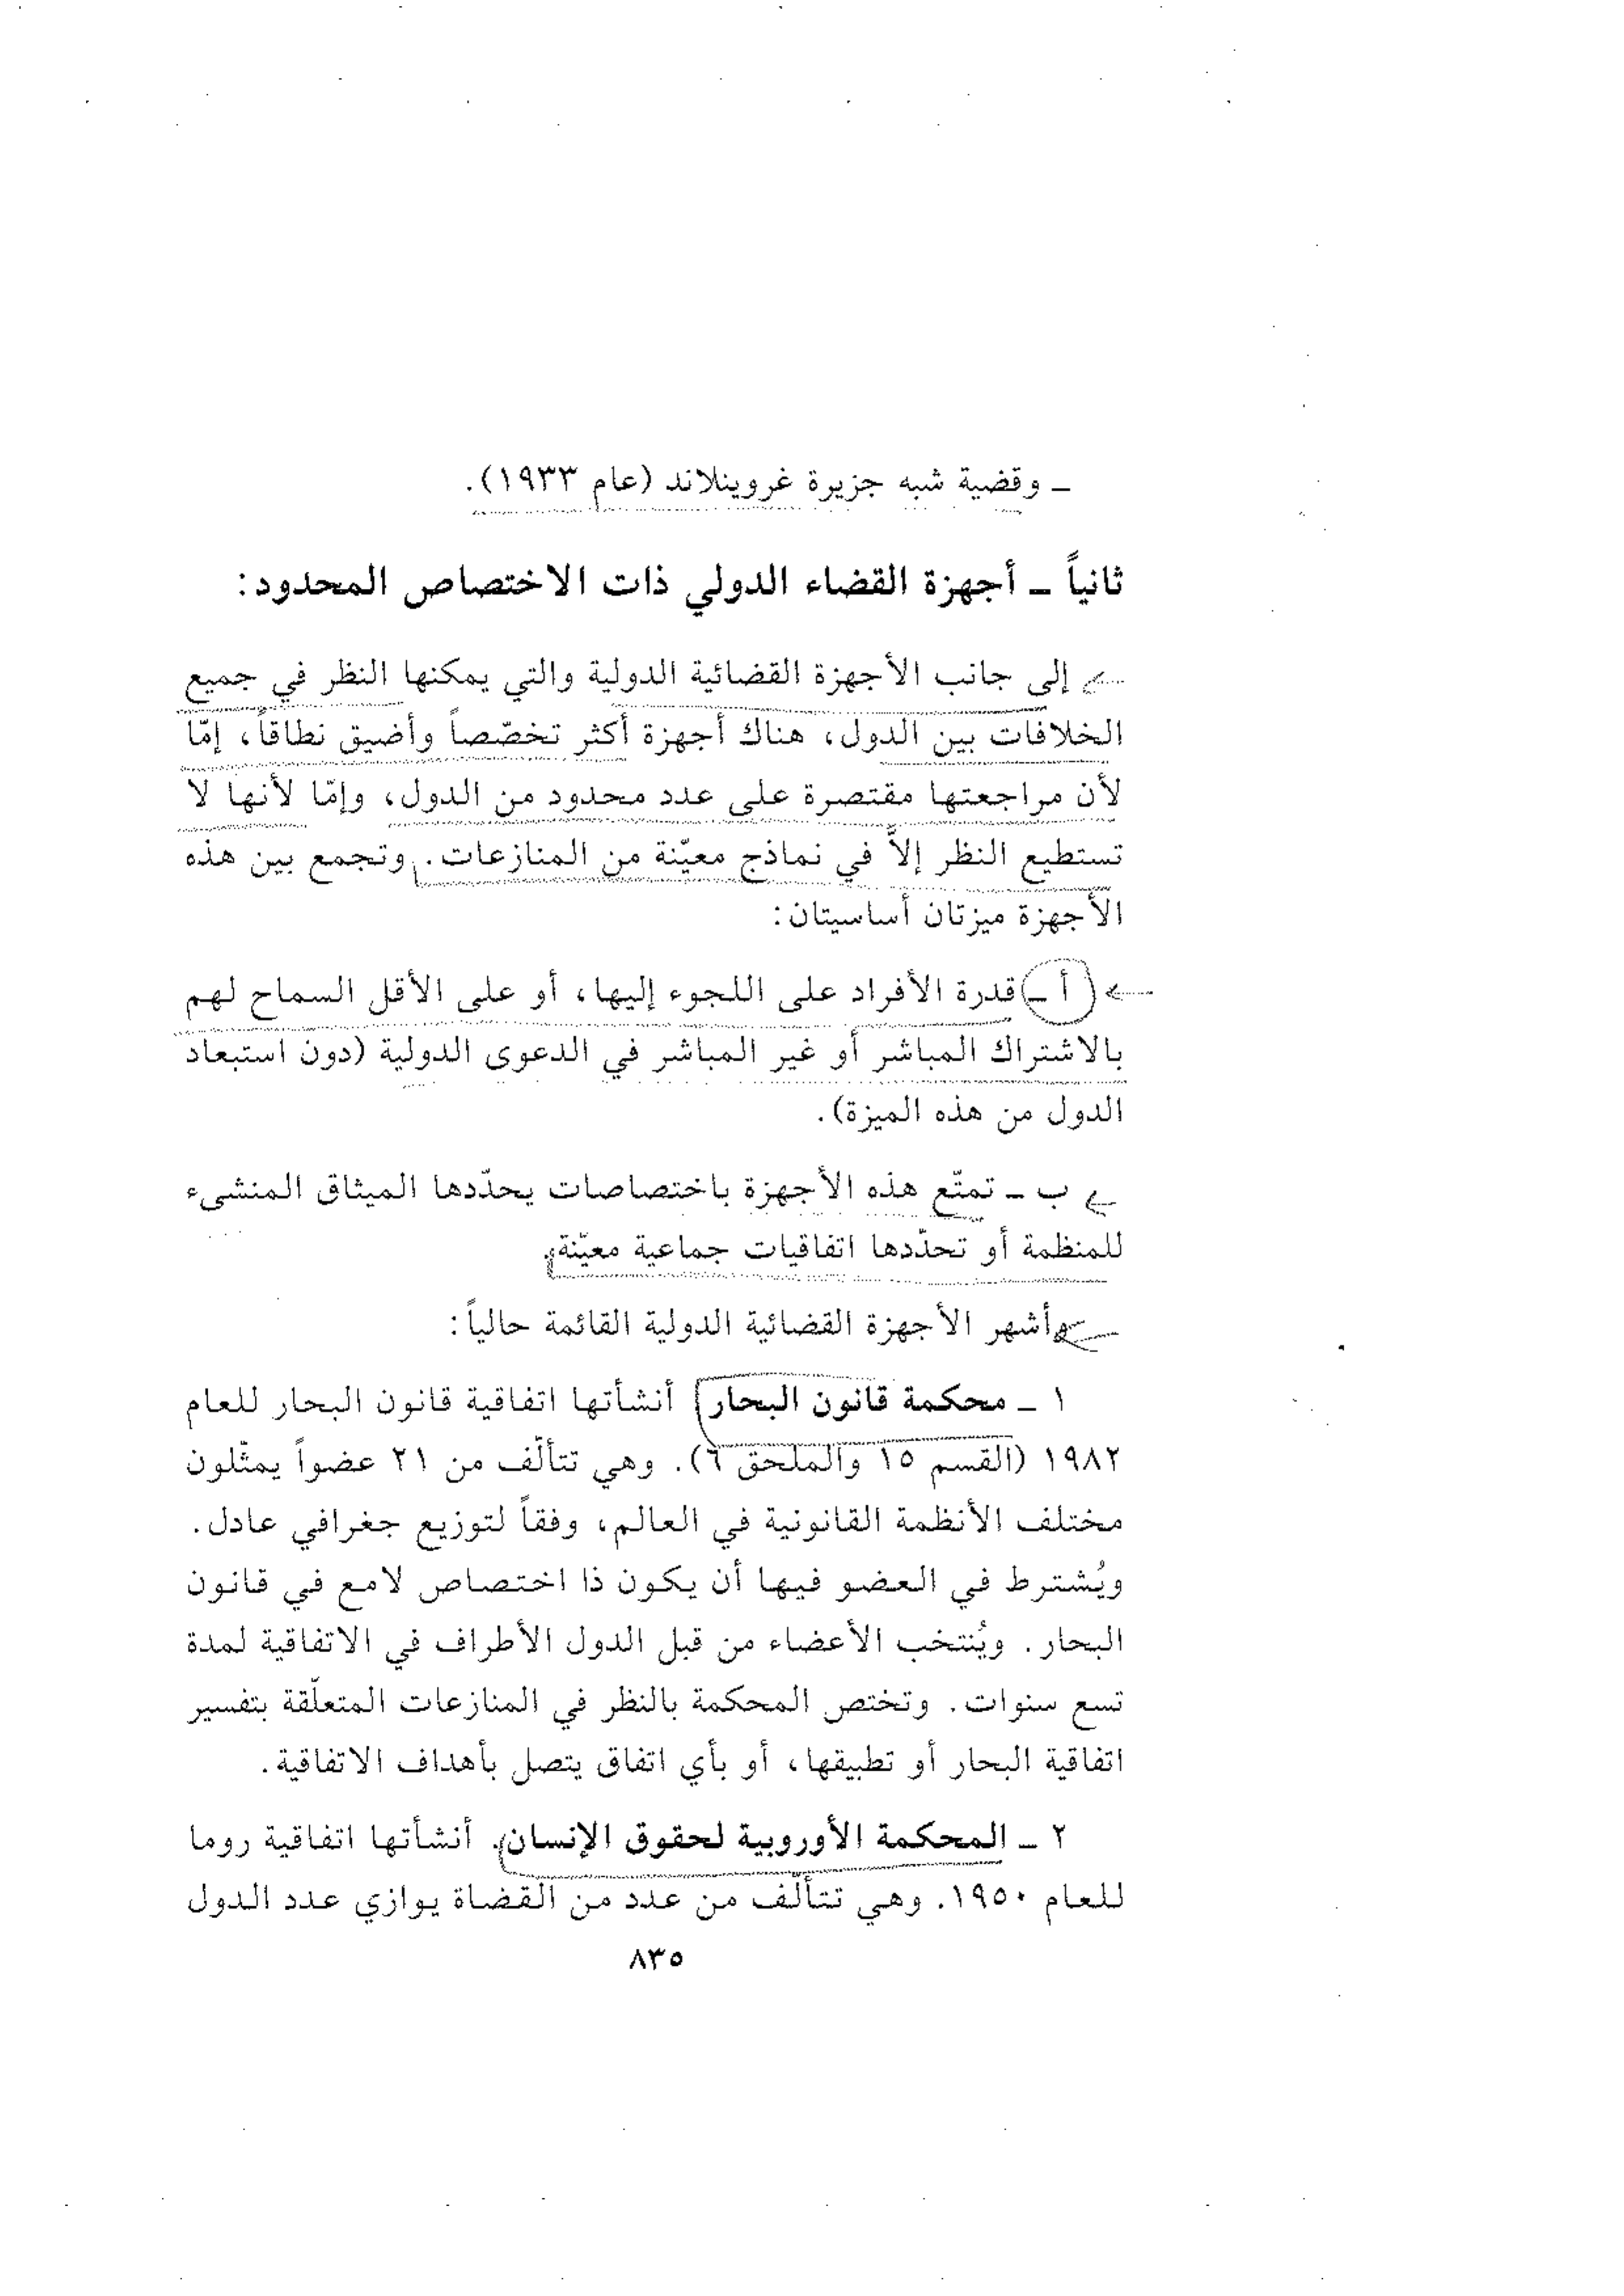 ـ وقضية شبه جزيرة غروينلاند (عام ١٩٣٣).
ثانياً ـ أجهزة القضاء الدولي ذات الاختصاص المحدود:
إلى جانب الأجهزة القضائية الدولية والتي يمكنها النظر في جميع
الخلافات بين الدول، هناك أجهزة أكثر تخصّصاً وأضيق نطاقاً، إمّا
لأن مراجعتها مقتصرة على عدد محدود من الدول، وإمّا لأنها لا
تستطيع النظر إلاَّ في نماذج معيّنة من المنازعات. وتجمع بين هذه
الأجهزة ميزتان أساسيتان:
أ ـ قدرة الأفراد على اللجوء إليها، أو على الأقل السماح لهم
بالاشتراك المباشر أو غير المباشر في الدعوى الدولية (دون استبعاد
الدول من هذه الميزة).
ب ـ تمتّع هذه الأجهزة باختصاصات يحدّدها الميثاق المنشىء
للمنظمة أو تحدّدها اتفاقيات جماعية معيّنة.
وأشهر الأجهزة القضائية الدولية القائمة حالياً:
١ ـ محكمة قانون البحار أنشأتها اتفاقية قانون البحار للعام
١٩٨٢ (القسم ١٥ والملحق ٦). وهي تتألّف من ٢١ عضواً يمثّلون
مختلف الأنظمة القانونية في العالم، وفقاً لتوزيع جغرافي عادل.
ويُشترط في العضو فيها أن يكون ذا اختصاص لامع في قانون
البحار. ويُنتخب الأعضاء من قبل الدول الأطراف في الاتفاقية لمدة
تسع سنوات. وتختص المحكمة بالنظر في المنازعات المتعلّقة بتفسير
اتفاقية البحار أو تطبيقها، أو بأي اتفاق يتصل بأهداف الاتفاقية.
٢ ـ المحكمة الأوروبية لحقوق الإنسان. أنشأتها اتفاقية روما
للعام ١٩٥٠. وهي تتألّف من عدد من القضاة يوازي عدد الدول
٨٣٥